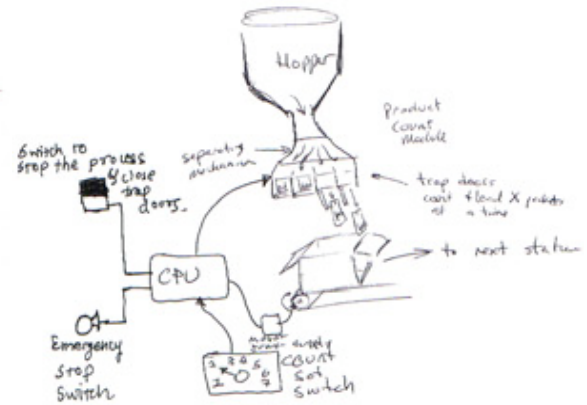 Hopper
Product
Count
Module
separating
mechanism
Switch to
stop the process
& close
trap
doors.
trap doors
count & load X packets
at a time
to next station
CPU
Emergency
Stop
Switch
Motor
power supply
1 2 3 4 5 6 7
Count
Set
Switch